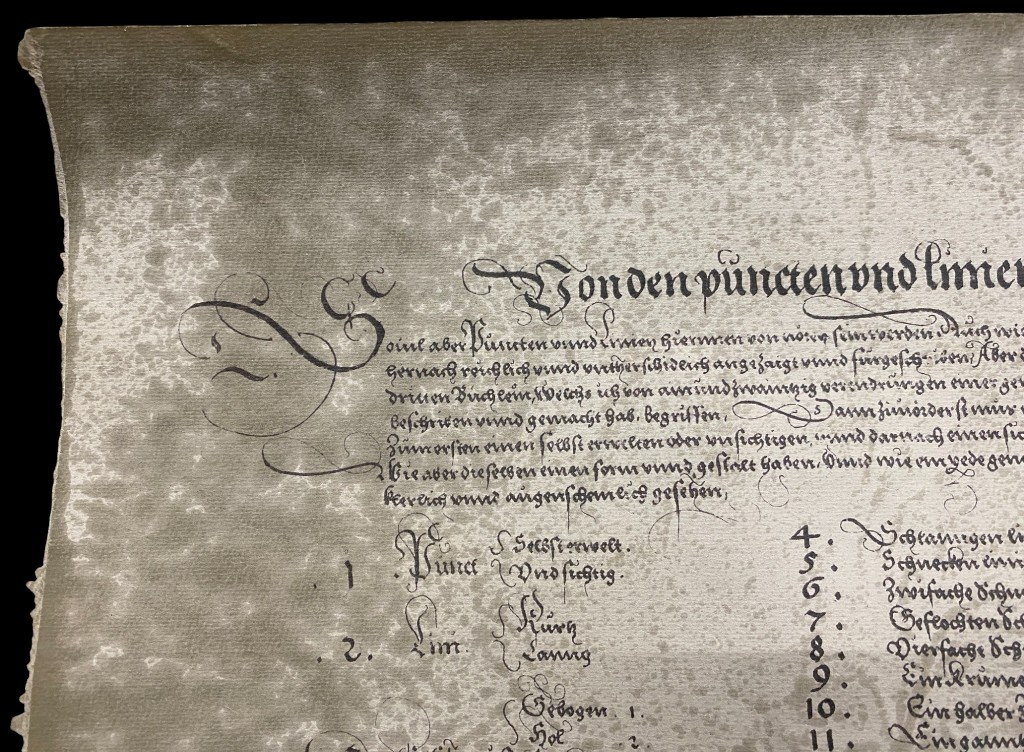 Von den püncten vnd linien
Souil aber Püncten vnnd Linien hierinnen von nöten sein werden, Auch wie
hernach reichlich vnnd vntherschidlich angezaigt vnnd fürgeschriben, Aber d
dritten Büchlein, Welchs ich von ain vnd zwaintzig verendrungen einer ge
beschriben vnnd gemacht hab, begriffen, Dann zuuorderst mus
Zum ersten einen selbst erwelten oder vnsichtigen, vnnd darnach einen sic
Wie aber dieselben einen form vnnd gestalt haben, Vnnd wie ein yede gen
klerlich vnnd augenscheinlich gesehen,
1 Punct Selbst erwelt.
Vnd sichtig.
2. Lini. Kürtz
Lanng
Gebogen. 1.
Hol 2.
4. Schlanngen li
5. Schnecken linn
6. Zwifache Schn
7. Geflochten Sc
8. Vierfache Sch
9. Ein Krume
10. Ein halber
11. Ein gannt